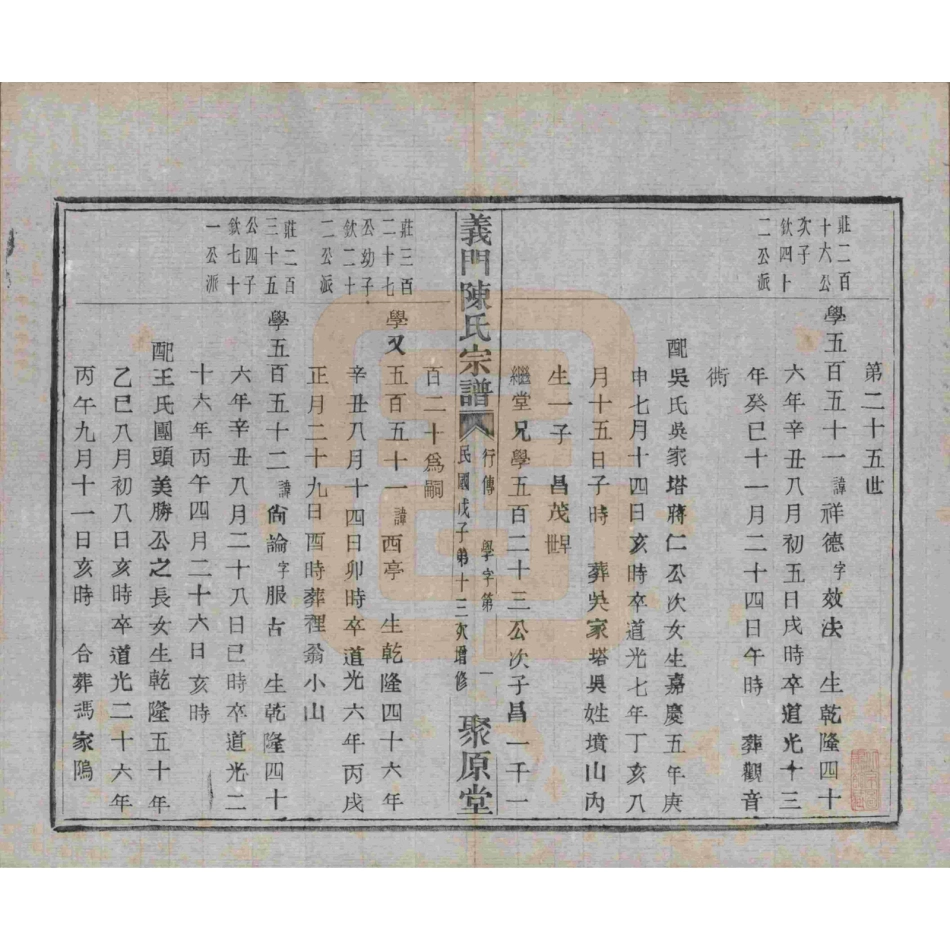 第二十五世
莊二百
十六公
次子
欽四十
二公派
學五百五十一諱祥德字效法　生乾隆四十
六年辛丑八月初五日戌時卒道光十三
年癸巳十一月二十四日午時　葬觀音
衖
配吳氏吳家塔蔣仁公次女生嘉慶五年庚
申七月十四日亥時卒道光七年丁亥八
月十五日子時　葬吳家塔吳姓墳山內
生一子　昌茂
繼堂兄學五百二十三公次子昌一千一
義門陳氏宗譜
行傳　學字第　一
民國戊子弟十三次增修
聚原堂
百二十為嗣
莊三百
二十七
公幼子
欽二十
二公派
學又五百五十一諱西亭　生乾隆四十六年
辛丑八月十四日卯時卒道光六年丙戌
正月二十九日酉時葬裡翁小山
莊二百
三十五
公四子
欽七十
一公派
學五百五十二諱尙論字服古　生乾隆四十
六年辛丑八月二十八日巳時卒道光二
十六年丙午四月二十六日亥時
配王氏團頭美勝公之長女生乾隆五十年
乙巳八月初八日亥時卒道光二十六年
丙午九月十一日亥時　合葬馮家隝